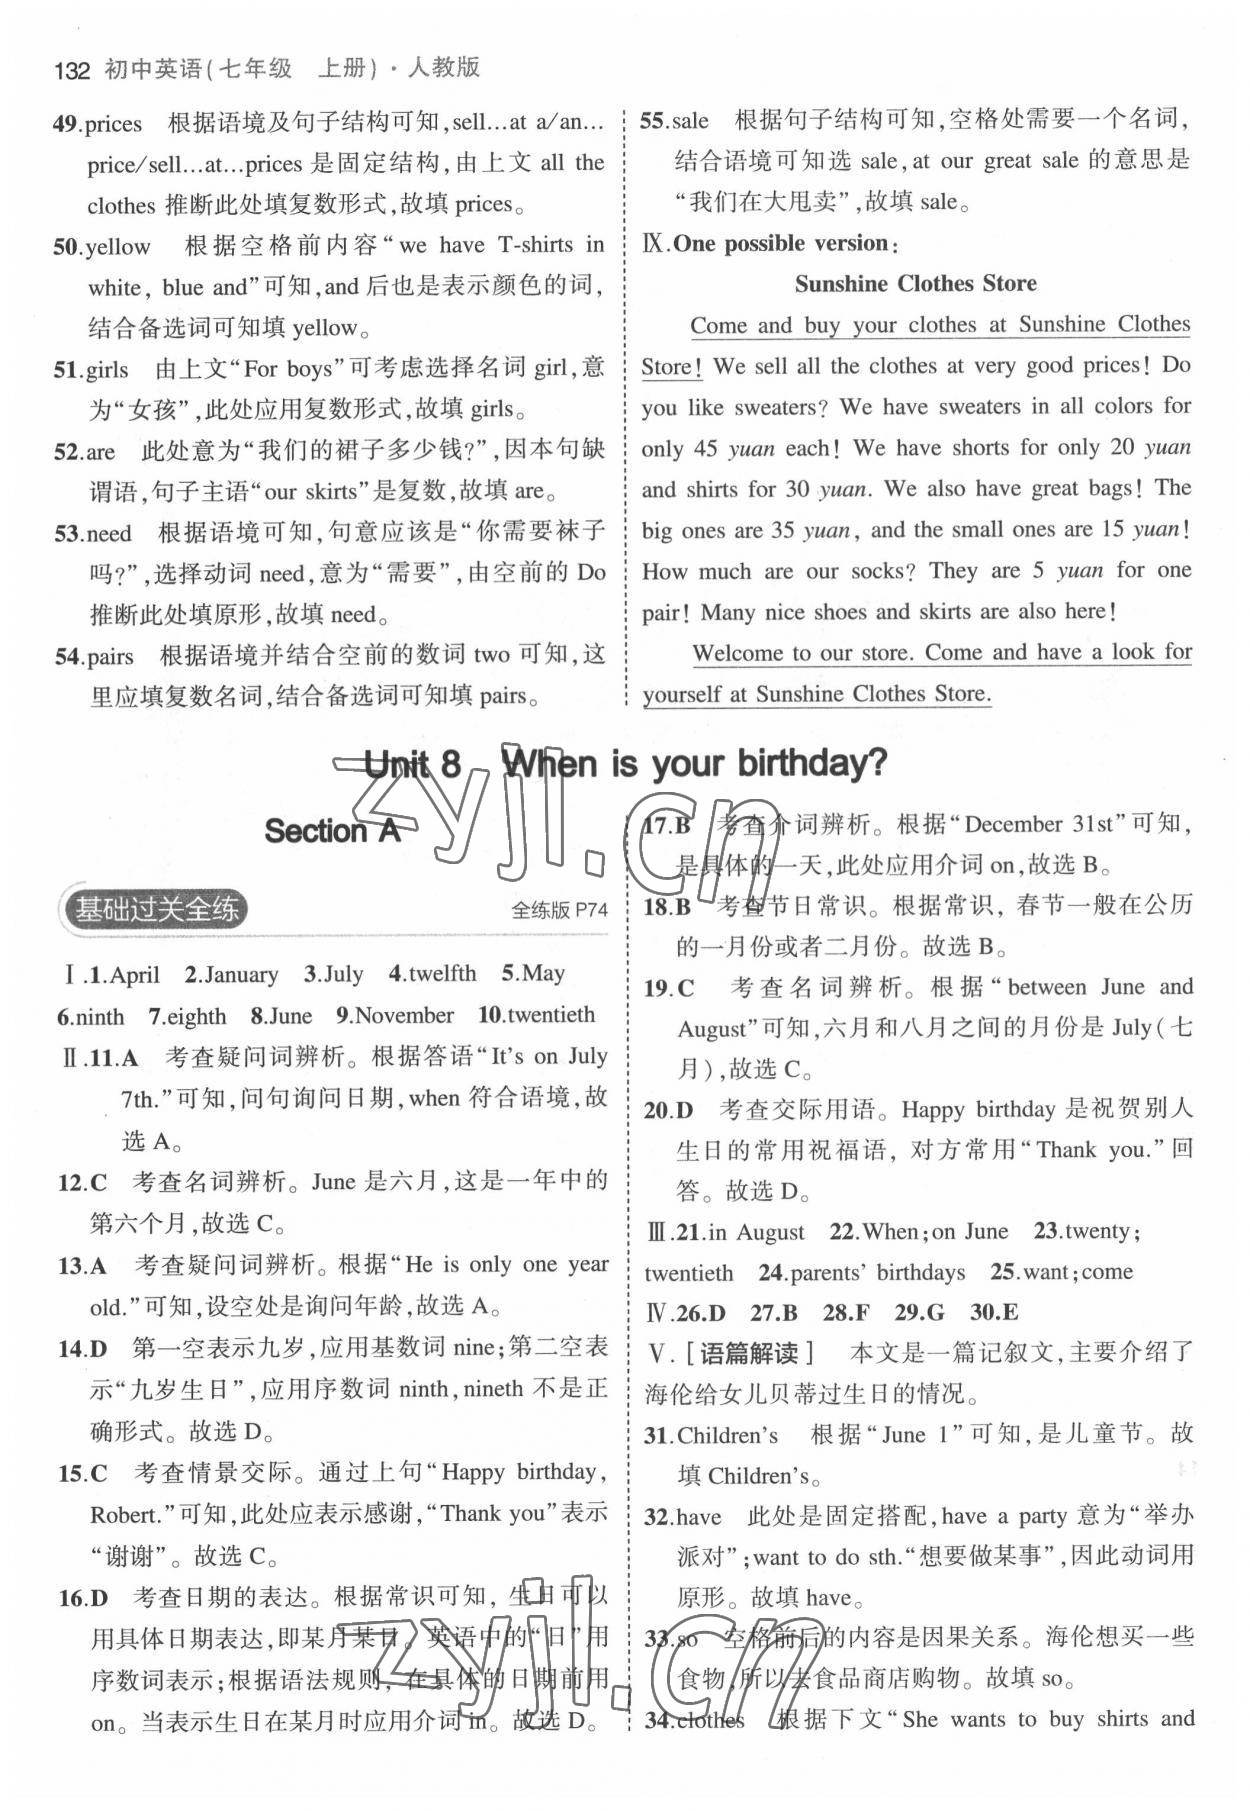 132 初中英语(七年级　上册)·人教版
49.prices　根据语境及句子结构可知,sell…at a/an…
price/sell…at…prices 是固定结构,由上文 all the
clothes 推断此处填复数形式,故填 prices。
50.yellow　根据空格前内容“we have T-shirts in
white, blue and”可知,and 后也是表示颜色的词,
结合备选词可知填 yellow。
51.girls　由上文“For boys”可考虑选择名词 girl,意
为“女孩”,此处应用复数形式,故填 girls。
52.are　此处意为“我们的裙子多少钱?”,因本句缺
谓语,句子主语“our skirts”是复数,故填 are。
53.need　根据语境可知,句意应该是“你需要袜子
吗?”,选择动词 need,意为“需要”,由空前的 Do
推断此处填原形,故填 need。
54.pairs　根据语境并结合空前的数词 two 可知,这
里应填复数名词,结合备选词可知填 pairs。
55.sale　根据句子结构可知,空格处需要一个名词,
结合语境可知选 sale,at our great sale 的意思是
“我们在大甩卖”,故填 sale。
Ⅸ.One possible version:
Sunshine Clothes Store
Come and buy your clothes at Sunshine Clothes
Store! We sell all the clothes at very good prices! Do
you like sweaters? We have sweaters in all colors for
only 45 yuan each! We have shorts for only 20 yuan
and shirts for 30 yuan. We also have great bags! The
big ones are 35 yuan, and the small ones are 15 yuan!
How much are our socks? They are 5 yuan for one
pair! Many nice shoes and skirts are also here!
Welcome to our store. Come and have a look for
yourself at Sunshine Clothes Store.
Unit 8　When is your birthday?
Section A
基础过关全练　全练版 P74
Ⅰ.1.April　2.January　3.July　4.twelfth　5.May
6.ninth　7.eighth　8.June　9.November　10.twentieth
Ⅱ.11.A　考查疑问词辨析。根据答语“It's on July
7th.”可知,问句询问日期,when 符合语境,故
选 A。
12.C　考查名词辨析。June 是六月,这是一年中的
第六个月,故选 C。
13.A　考查疑问词辨析。根据“He is only one year
old.”可知,设空处是询问年龄,故选 A。
14.D　第一空表示九岁,应用基数词 nine;第二空表
示“九岁生日”,应用序数词 ninth,nineth 不是正
确形式。故选 D。
15.C　考查情景交际。通过上句“Happy birthday,
Robert.”可知,此处应表示感谢,“Thank you”表示
“谢谢”。故选 C。
16.D　考查日期的表达。根据常识可知,生日可以
用具体日期表达,即某月某日。英语中的“日”用
序数词表示;根据语法规则,在具体的日期前用
on。当表示生日在某月时应用介词 in。故选 D。
17.B　考查介词辨析。根据“December 31st”可知,
是具体的一天,此处应用介词 on,故选 B。
18.B　考查节日常识。根据常识,春节一般在公历
的一月份或者二月份。故选 B。
19.C　考查名词辨析。根据“between June and
August”可知,六月和八月之间的月份是 July(七
月),故选 C。
20.D　考查交际用语。Happy birthday 是祝贺别人
生日的常用祝福语,对方常用“Thank you.”回
答。故选 D。
Ⅲ.21.in August　22.When;on June　23.twenty;
twentieth　24.parents' birthdays　25.want;come
Ⅳ.26.D　27.B　28.F　29.G　30.E
Ⅴ.[语篇解读]　本文是一篇记叙文,主要介绍了
海伦给女儿贝蒂过生日的情况。
31.Children's　根据“June 1”可知,是儿童节。故
填 Children's。
32.have　此处是固定搭配,have a party 意为“举办
派对”;want to do sth.“想要做某事”,因此动词用
原形。故填 have。
33.so　空格前后的内容是因果关系。海伦想买一些
食物,所以去食品商店购物。故填 so。
34.clothes　根据下文“She wants to buy shirts and
zyjl.cn
zyjl.cn